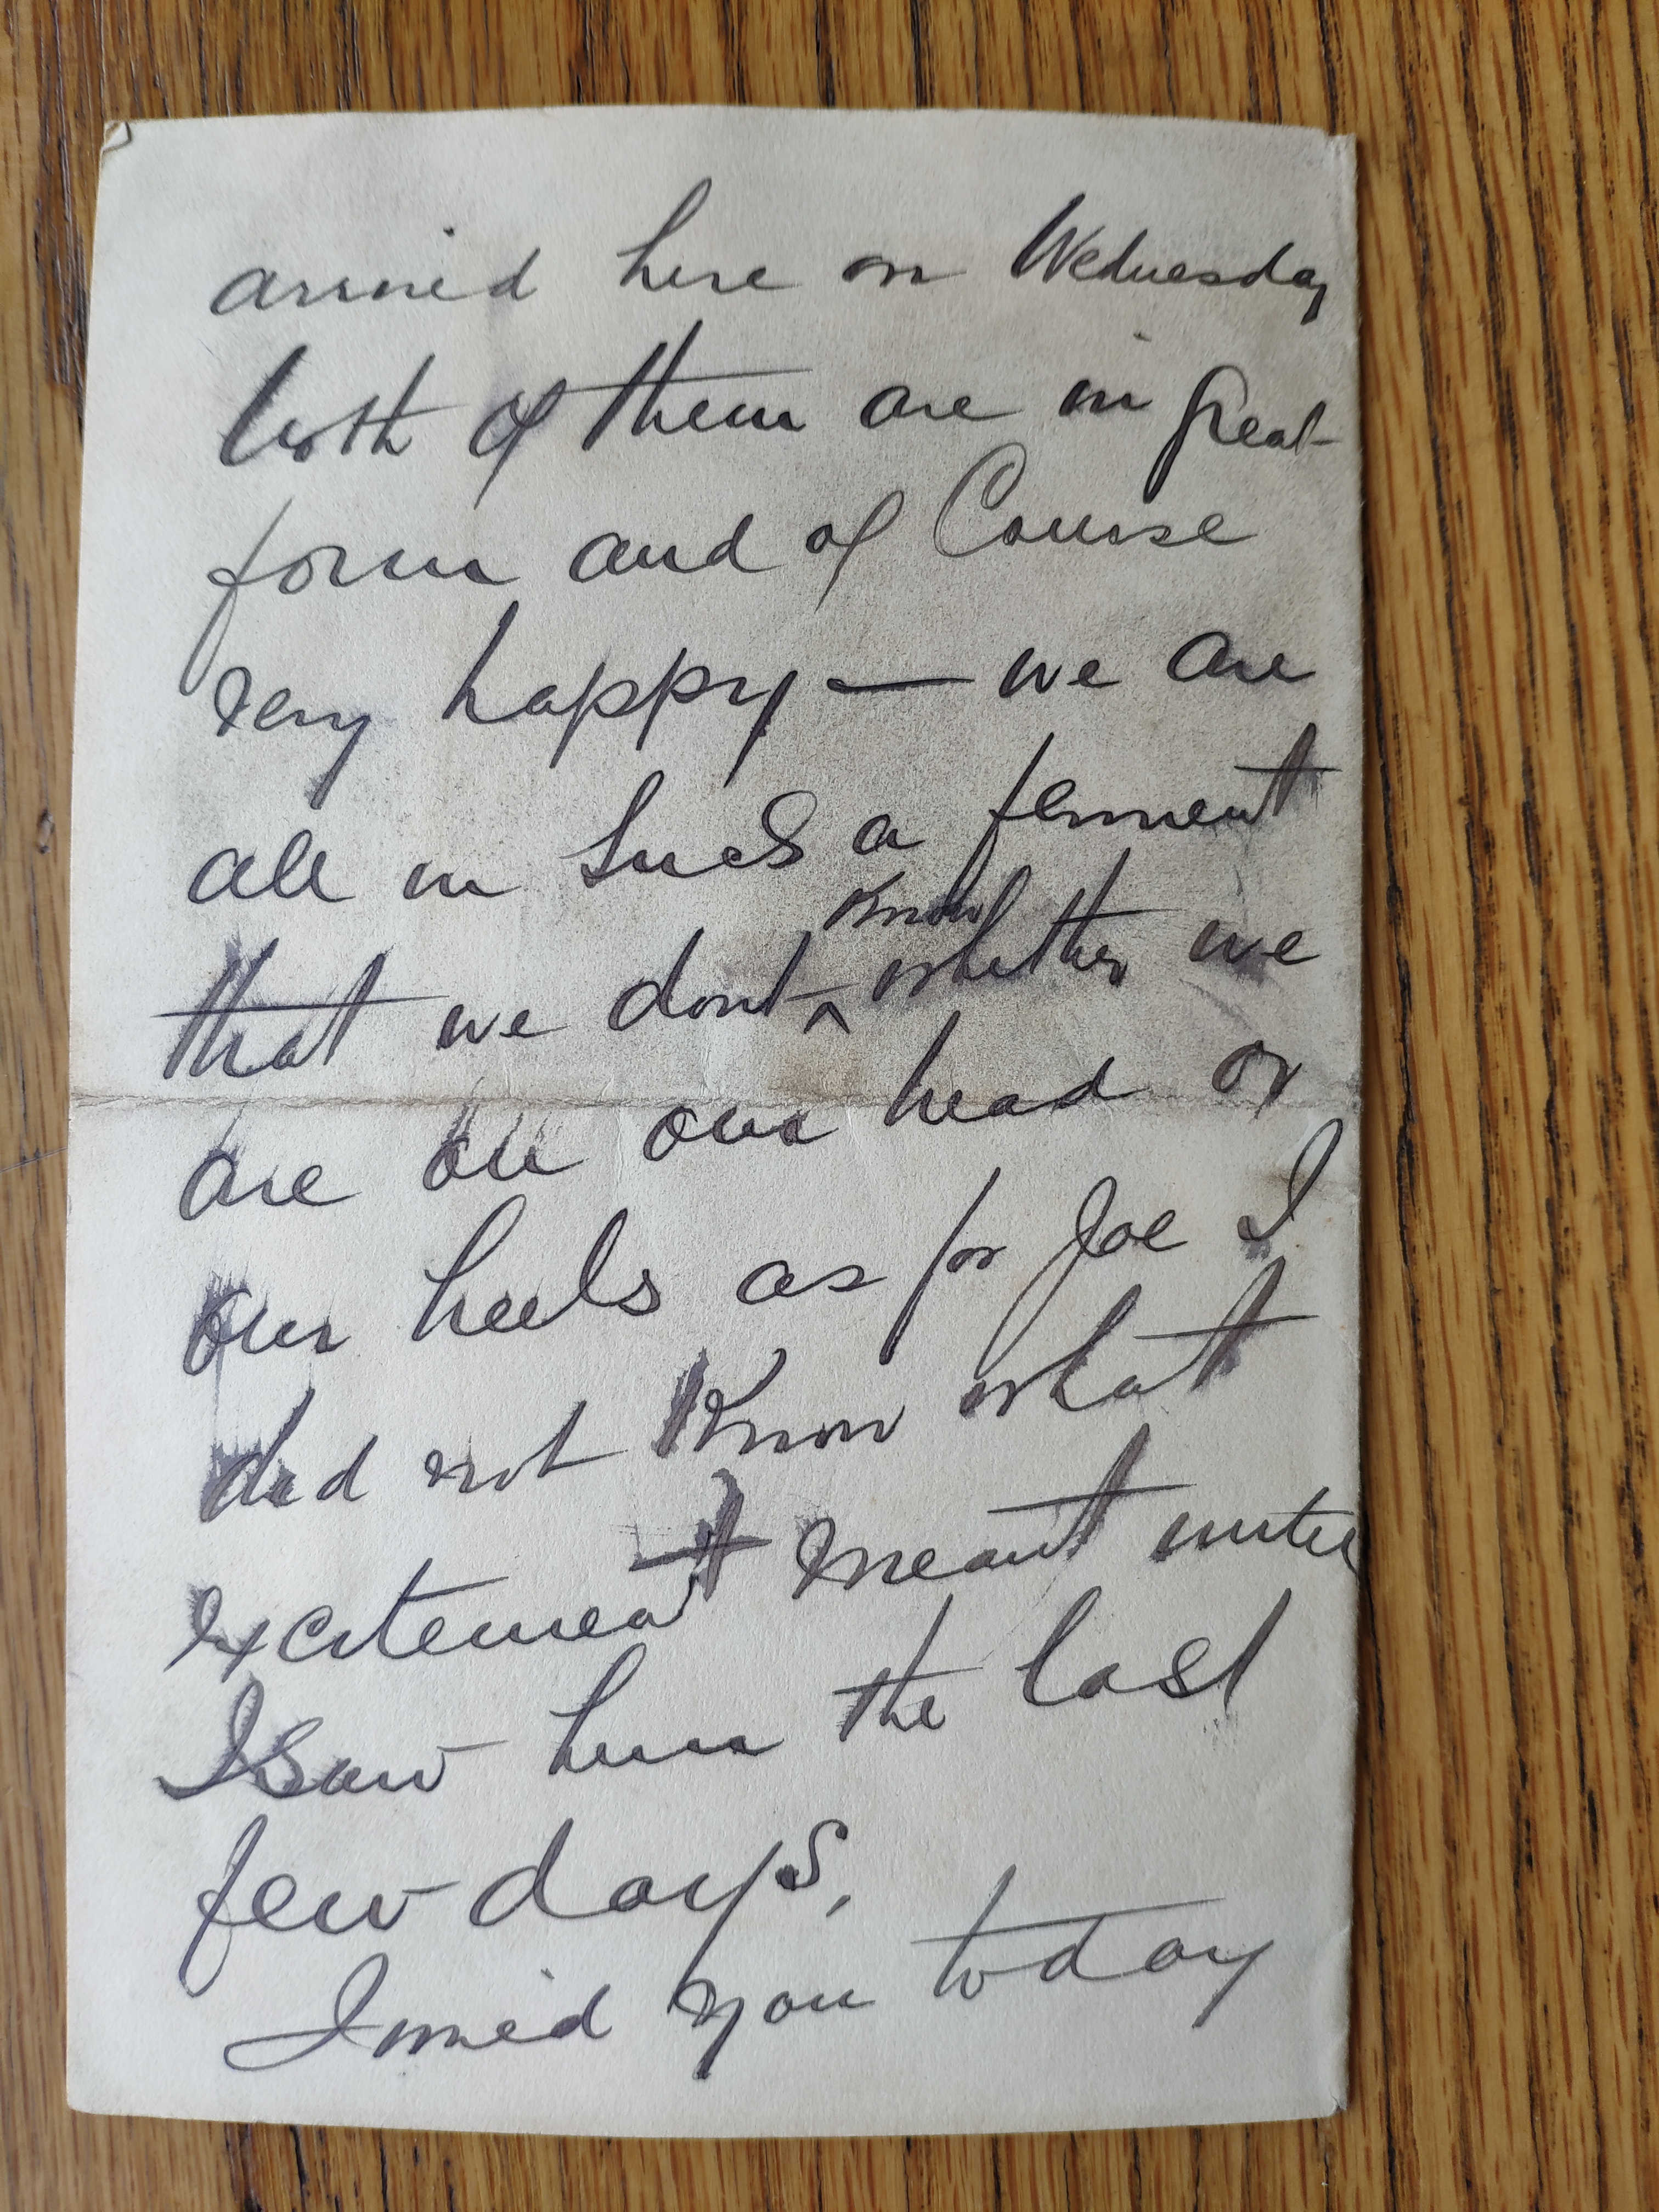 arrived here on Wednesday
both of them are in great
form and of Course
very happy — we are
all in such a ferment
know
that we dont ^ whether we
are on our head or
our heels as for Joe I
did not know what
excitement meant until
I saw him the last
few days,
I you today